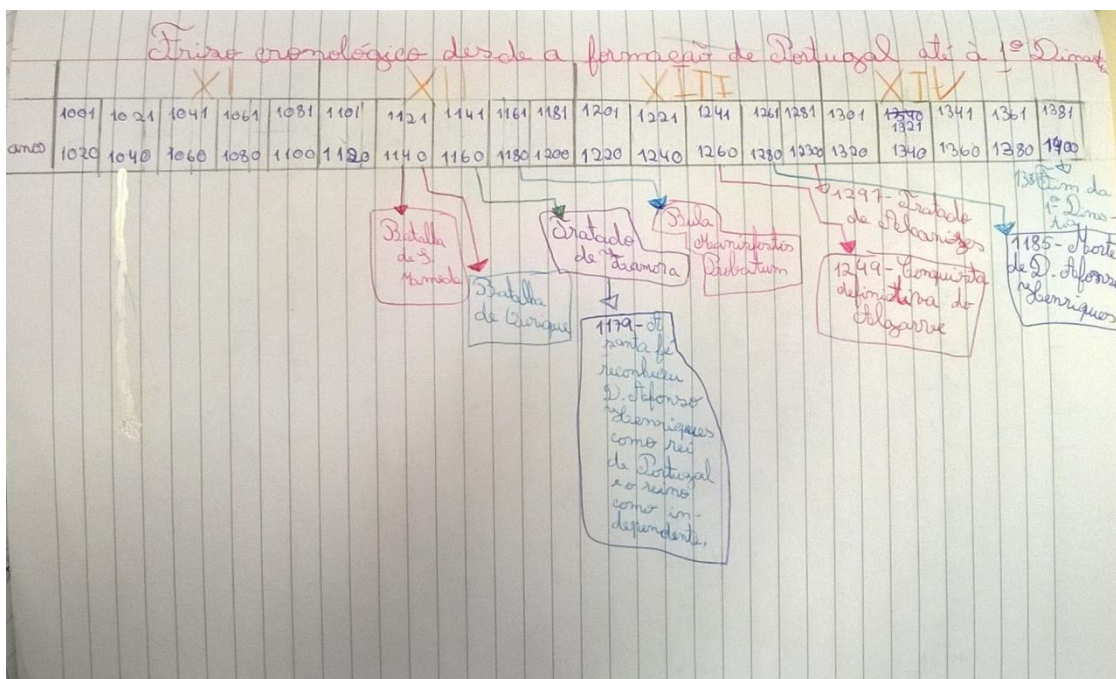 Friso cronológico desde a formação de Portugal até à 1ª Dinast
XI XII XIII XIV
1001 1021 1041 1061 1081 1101 1121 1141 1161 1181 1201 1221 1241 1261 1281 1301 1321 1341 1361 1381
anos 1020 1040 1060 1080 1100 1120 1140 1160 1180 1200 1220 1240 1260 1280 1300 1320 1340 1360 1380 1400
Batalha
de S.
Mamede
Batalha
de Ourique
Tratado
de Zamora
1179 - A
santa fé
reconheceu
D. Afonso
Henriques
como rei
de Portugal
e o reino
como in-
dependente.
Bula
Manisfestis
Probatum
1297 - Tratado
de Alcanizes
1249 - Conquista
definitiva do
Algarve
Fim da
1ª Dinas
1185 - Morte
de D. Afonso
Henriques